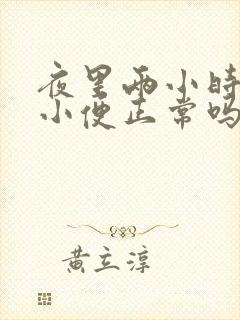 夜里两小时
小便正常吗
黄立淳